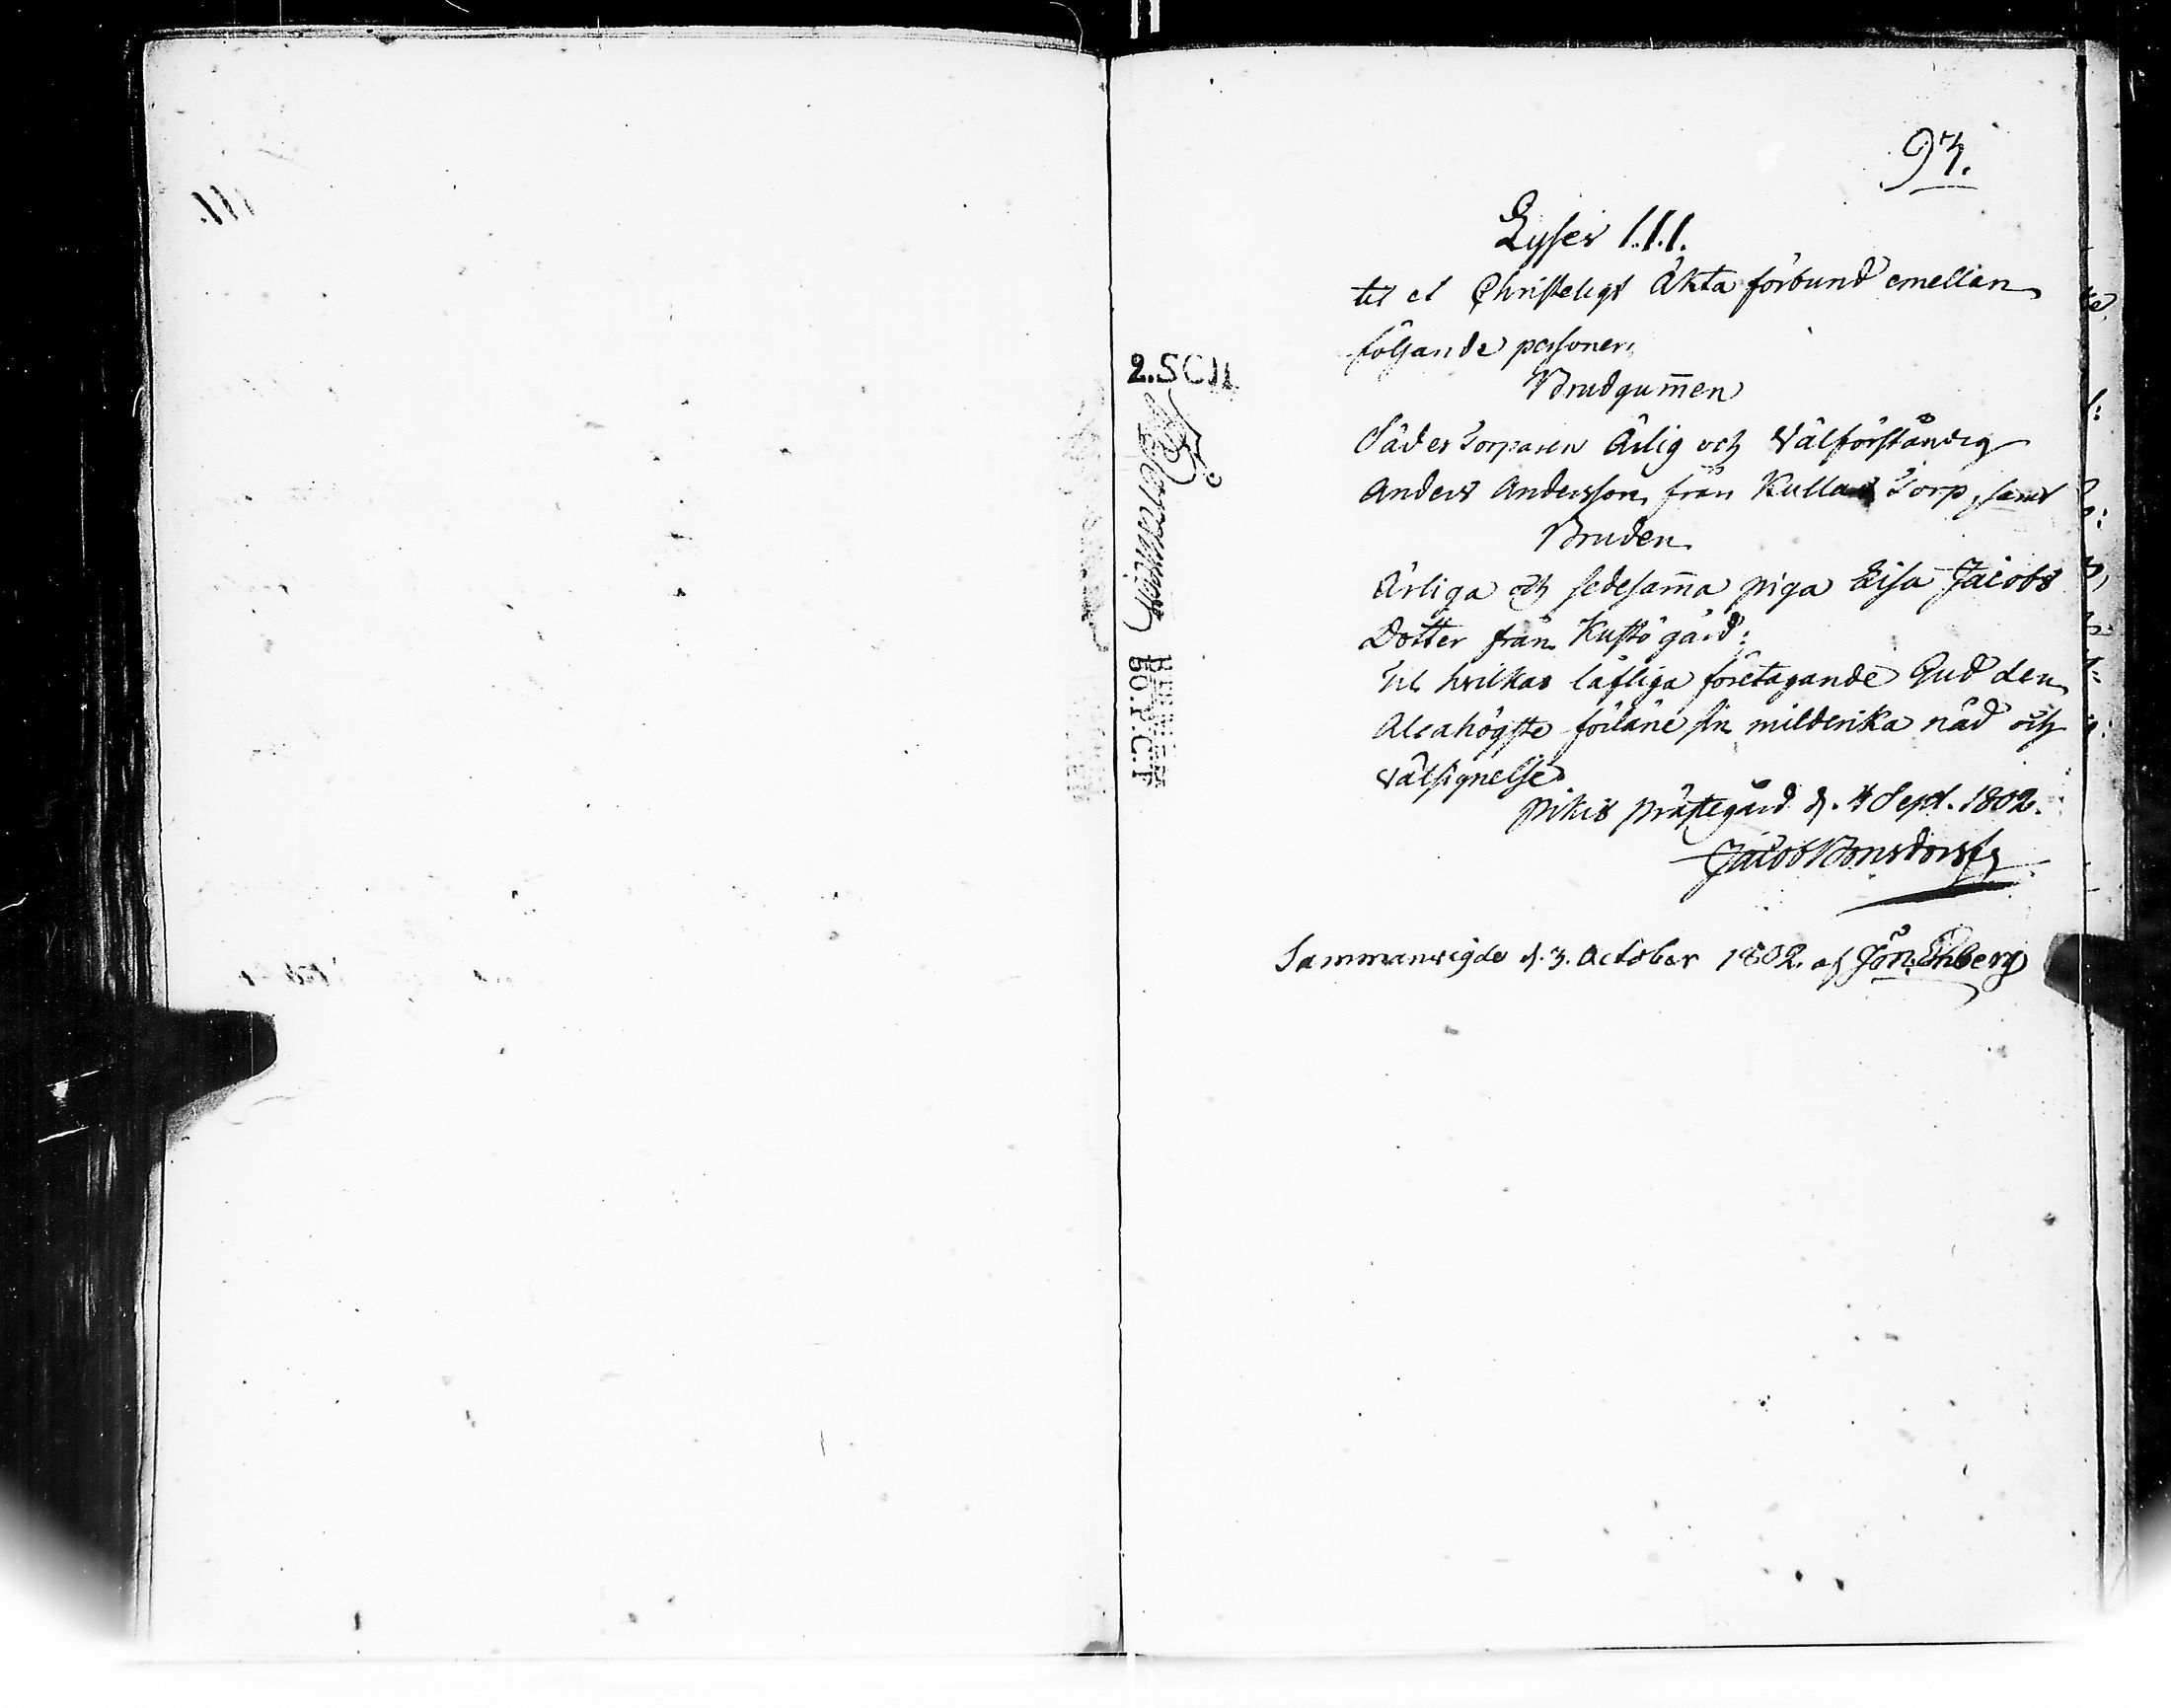 93.
Lyses I.I.I.
til et Christeligt Äkta förbund emellan
följande personer,
Brudgum̄en
Sädes Torparen Ärlig och Välförståndig
Anders Andersson från Kullas Torp, samt
Bruden
Ärliga och sedesam̄a piga Lisa Jacobs
Dotter från Kustö gård:
Til hvilkas lofliga företagande Gud den
Alrahögste förläne sin milderika nåd och
välsignelse
Pikis Prästegård d. 4 Sept. 1802.
Jacob Bonsdorff
Sammanvigde d. 3. October 1802. af Jon. Ehberg
2.SCH
50.P.C.T